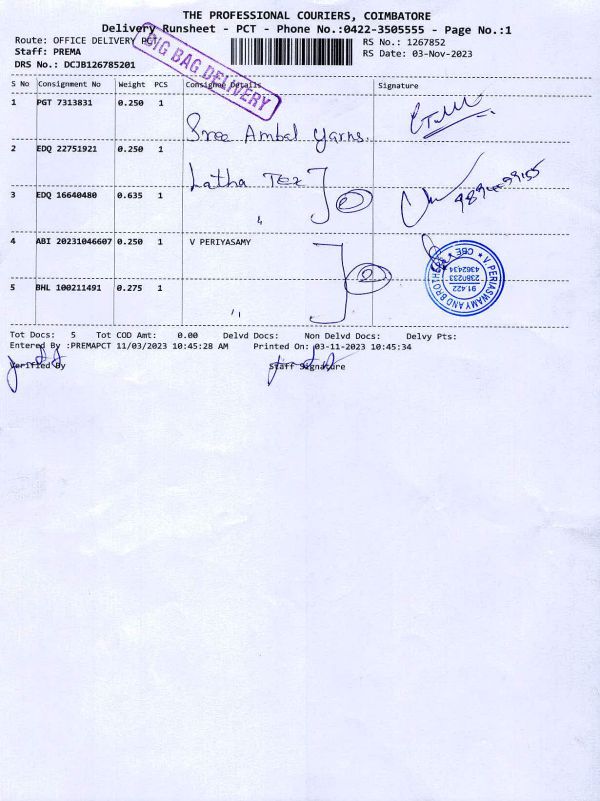 THE PROFESSIONAL COURIERS, COIMBATORE
Delivery Runsheet - PCT - Phone No.:0422-3505555 - Page No.:1
Route: OFFICE DELIVERY PCT
RS No.: 1267852
Staff: PREMA
RS Date: 03-Nov-2023
DRS No.: DCJB126785201
BIG BAG DELIVERY
S No Consignment No Weight PCS Consignee Details Signature
1 PGT 7313831 0.250 1
Sree Ambal Yarns.
2 EDQ 22751921 0.250 1
Latha Tex
2
3 EDQ 16640480 0.635 1
"
4 ABI 20231046607 0.250 1 V PERIYASAMY
2
V. PERIASWAMY AND BROTHERS CBE
91.422
2380233
4362434
5 BHL 100211491 0.275 1
"
Tot Docs: 5 Tot COD Amt: 0.00 Delvd Docs: Non Delvd Docs: Delvy Pts:
Entered By :PREMAPCT 11/03/2023 10:45:28 AM Printed On: 03-11-2023 10:45:34
Verified By Staff Signature